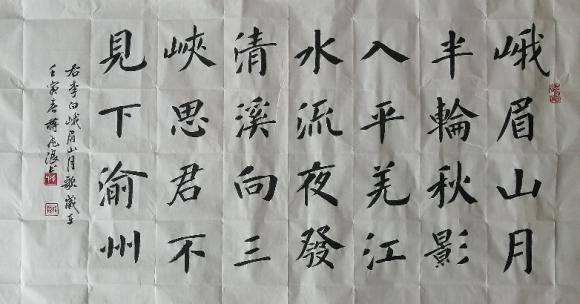 峨眉山月
半輪秋影
入平羌江
水流夜發
清溪向三
峽思君不
見下渝州
右李白峨眉山月歌歲在
壬寅春蔣兆